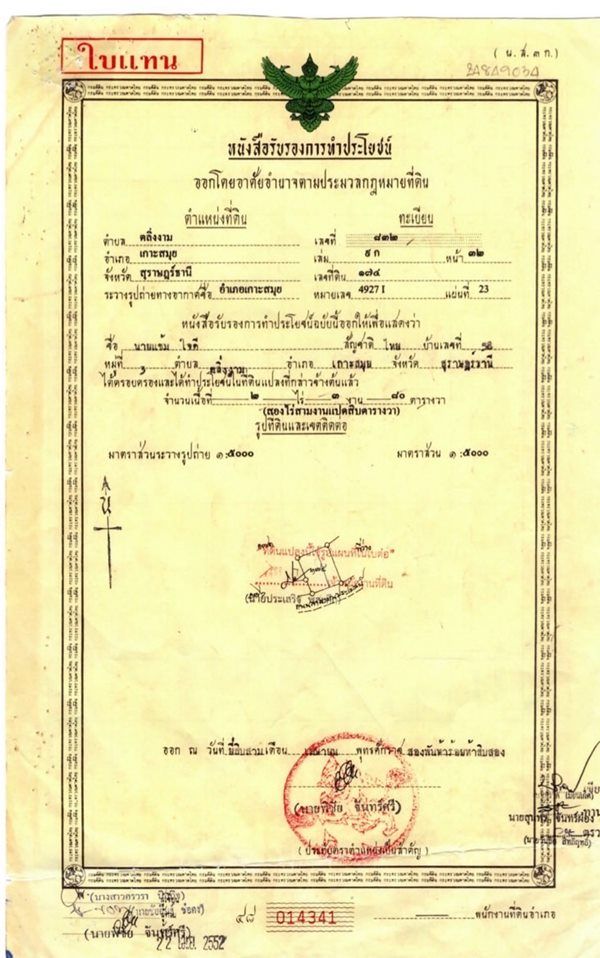 ใบแทน
( น.ส. ๓ ก. )
หนังสือรับรองการทำประโยชน์
ออกโดยอาศัยอำนาจตามประมวลกฎหมายที่ดิน
ตำแหน่งที่ดิน ทะเบียน
ตำบล ตลิ่งงาม เลขที่ ๘๓๒
อำเภอ เกาะสมุย เล่ม ๙ ก หน้า ๓๒
จังหวัด สุราษฎร์ธานี เลขที่ดิน ๑๗๔
ระวางรูปถ่ายทางอากาศชื่อ อำเภอเกาะสมุย หมายเลข 4927 I แผ่นที่ 23
หนังสือรับรองการทำประโยชน์ฉบับนี้ออกให้เพื่อแสดงว่า
ชื่อ นายแช้ม ใจดี สัญชาติ ไทย บ้านเลขที่
หมู่ที่ 3 ตำบล ตลิ่งงาม อำเภอ เกาะสมุย จังหวัด สุราษฎร์ธานี
ได้ครอบครองและได้ทำประโยชน์ในที่ดินแปลงที่กล่าวข้างต้นแล้ว
จำนวนเนื้อที่ ๒ ไร่ ๓ งาน ๘๐ ตารางวา
(สองไร่สามงานแปดสิบตารางวา)
รูปที่ดินและเขตติดต่อ
มาตราส่วนระวางรูปถ่าย ๑ : ๕๐๐๐ มาตราส่วน ๑ : ๕๐๐๐
น
"ที่ดินแปลงนี้ใช้รูปแผนที่ในใบต่อ"
ออก ณ วันที่ ยี่สิบสาม เดือน เมษายน พุทธศักราช สองพันห้าร้อยห้าสิบสอง
(นายพิชัย จันทร์ศรี)
( ประทับตราตำแหน่งเป็นสำคัญ )
(นายพิชัย จันทร์ศรี)
22 เม.ย. 2552
๔๘ 014341
พนักงานที่ดินอำเภอ